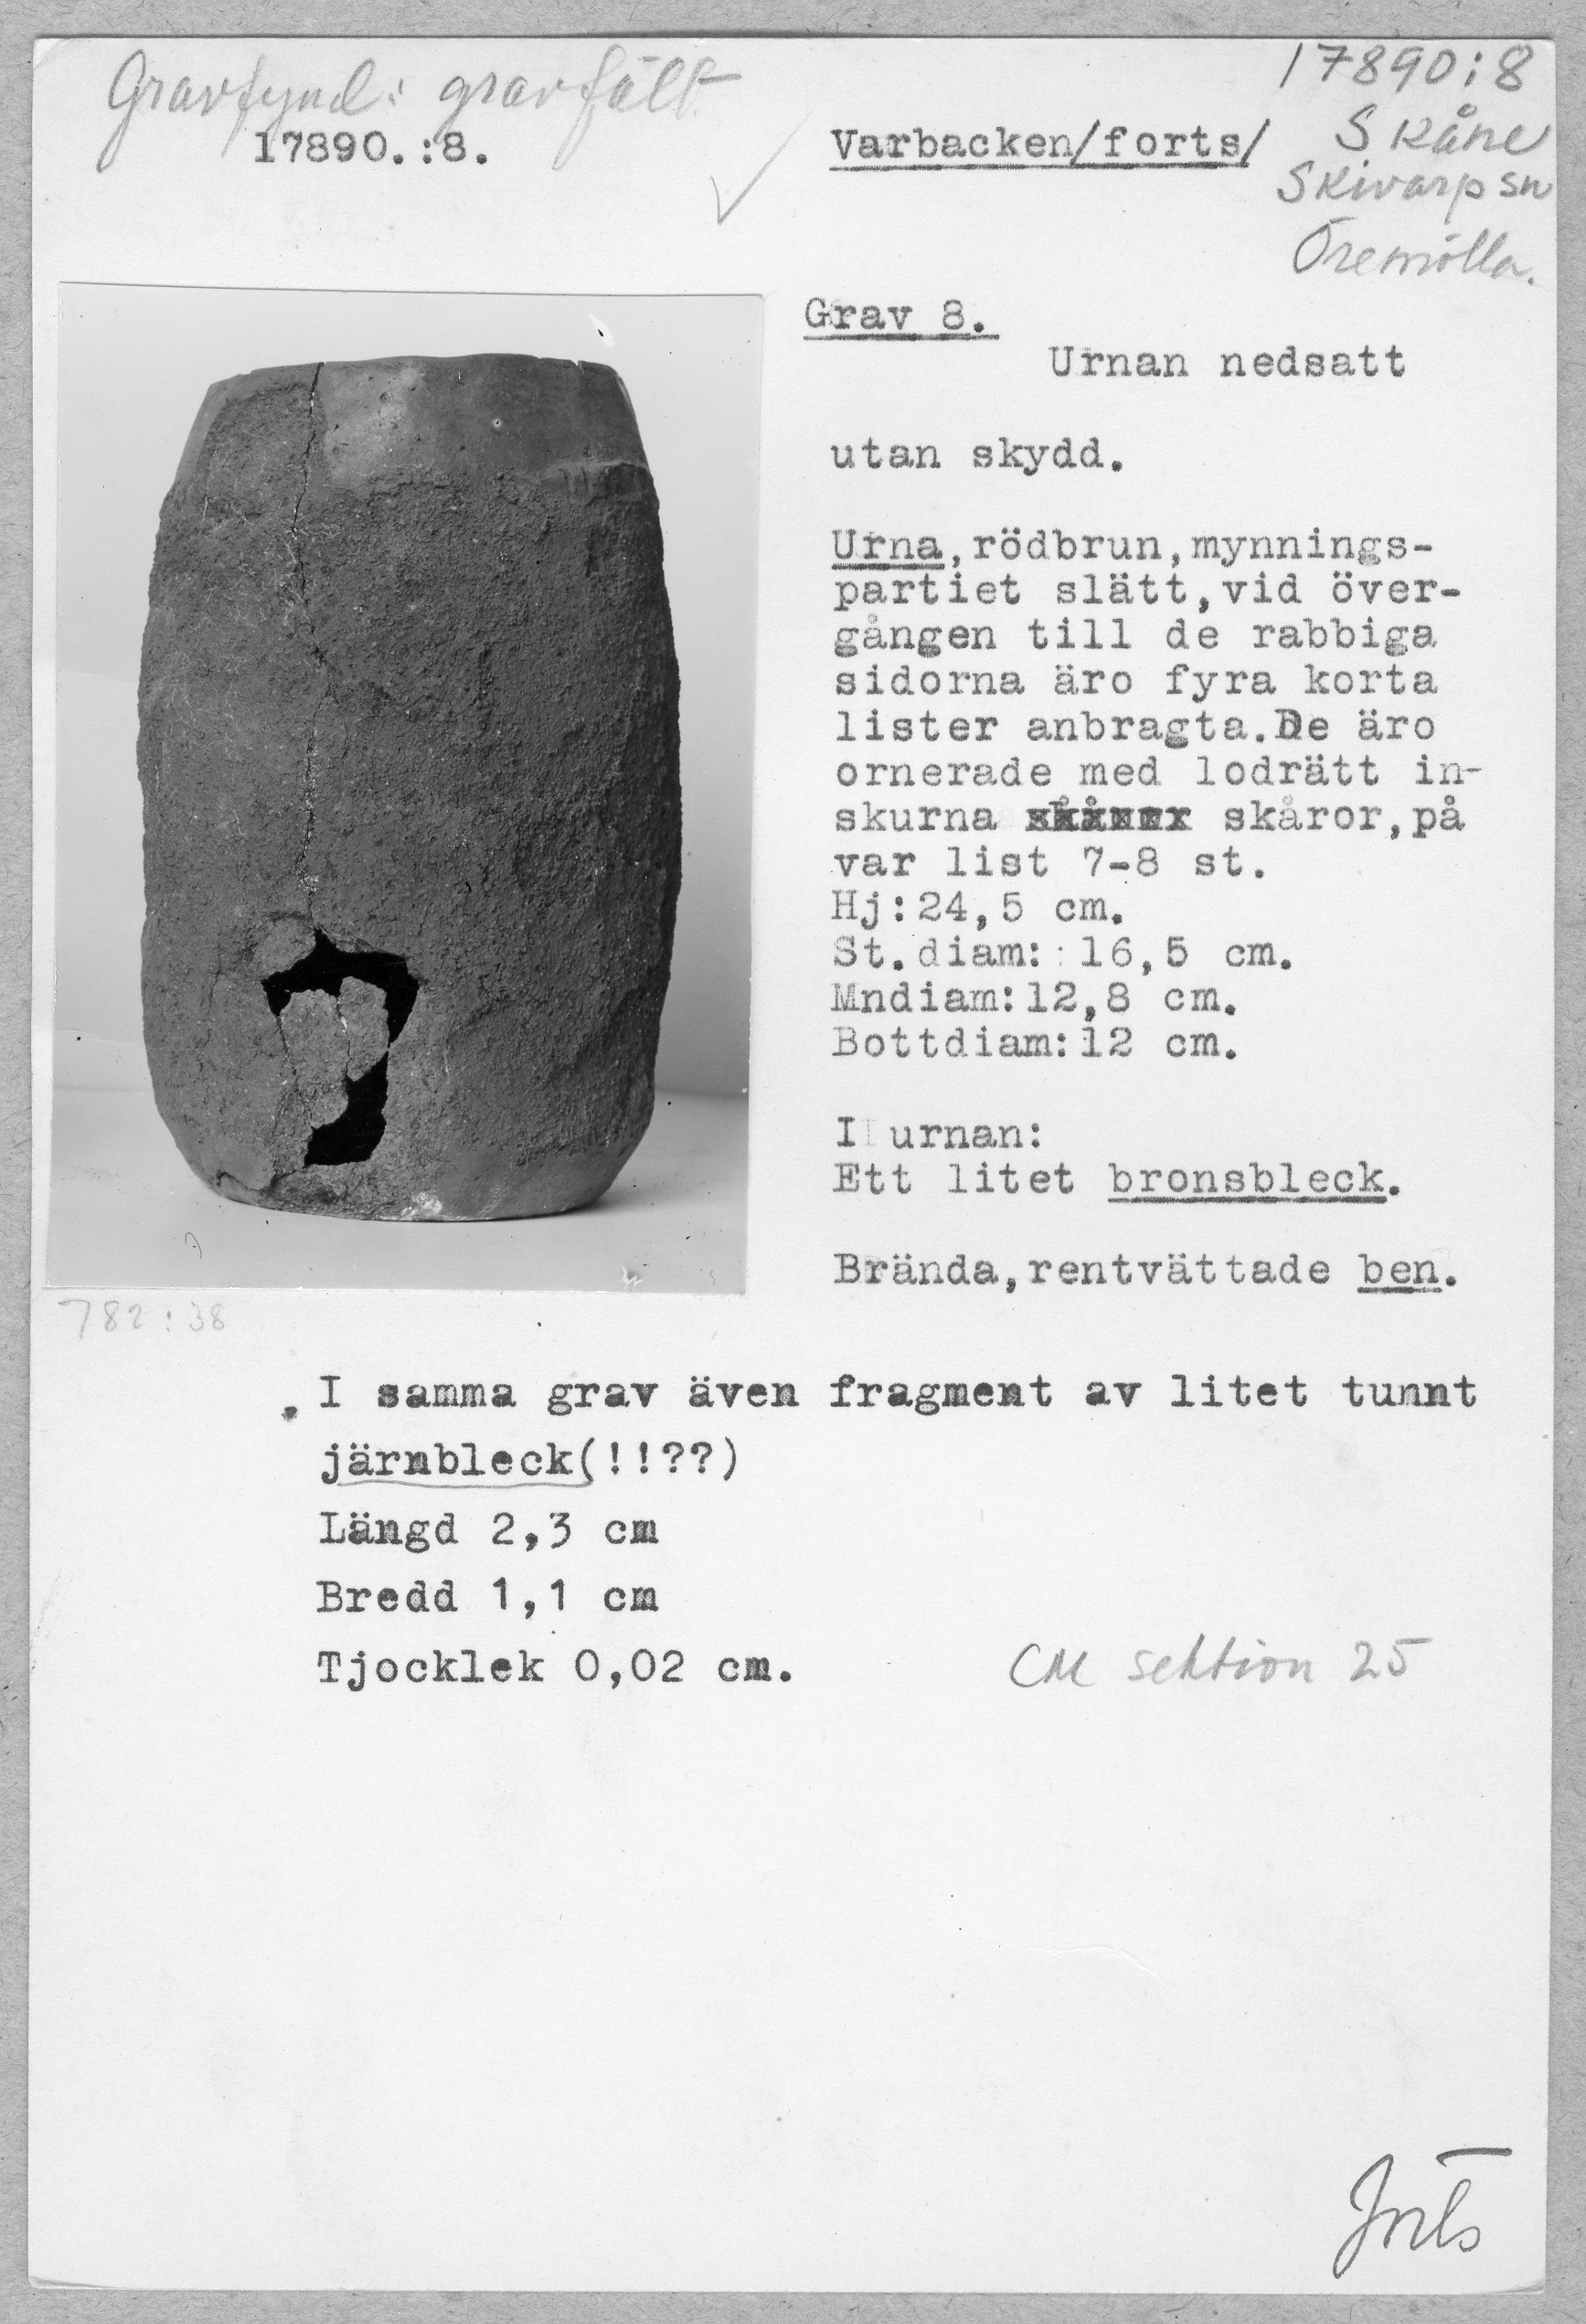 Gravfynd: gravfält
17890:8
17890.:8.
Varbacken/forts/
Skåne
Skivarp sn
Öremölla.
Grav 8.
Urnan nedsatt
utan skydd.
Urna,rödbrun,mynnings-
partiet slätt,vid över-
gången till de rabbiga
sidorna äro fyra korta
lister anbragta.De äro
ornerade med lodrätt in-
skurna skåror,på
var list 7-8 st.
Hj:24,5 cm.
St.diam: 16,5 cm.
Mndiam:12,8 cm.
Bottdiam:12 cm.
I urnan:
Ett litet bronsbleck.
Brända,rentvättade ben.
782:38
I samma grav även fragment av litet tunnt
järnbleck(!!??)
Längd 2,3 cm
Bredd 1,1 cm
Tjocklek 0,02 cm.
CM sektion 25